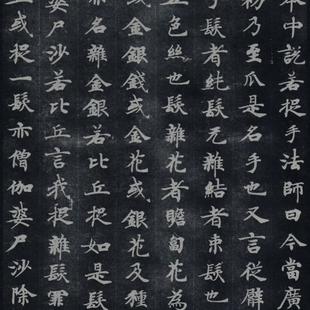 本中說若捉手法師曰今當廣
初乃至爪是名手也又言從臂
髮者純髮无雜結者束髮
五色絲也髮雜花者瞻匐花為
或金銀錢或金花或銀花及種
亦名雜金銀若捉如是髮
婆尸沙若比丘言我捉雜髮罪
或捉一髮亦僧伽婆尸沙除